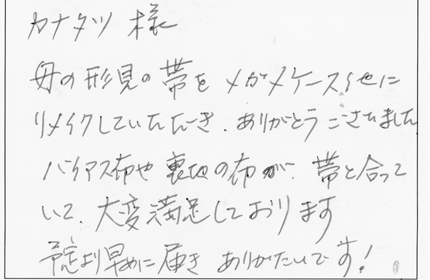 カナタツ 様
母の形見の帯をメガネケース他に
リメイクしていただき、ありがとうございました
バイアス布や裏地の布が、帯と合って
いて、大変満足しております
予定より早めに届きありがたいです！